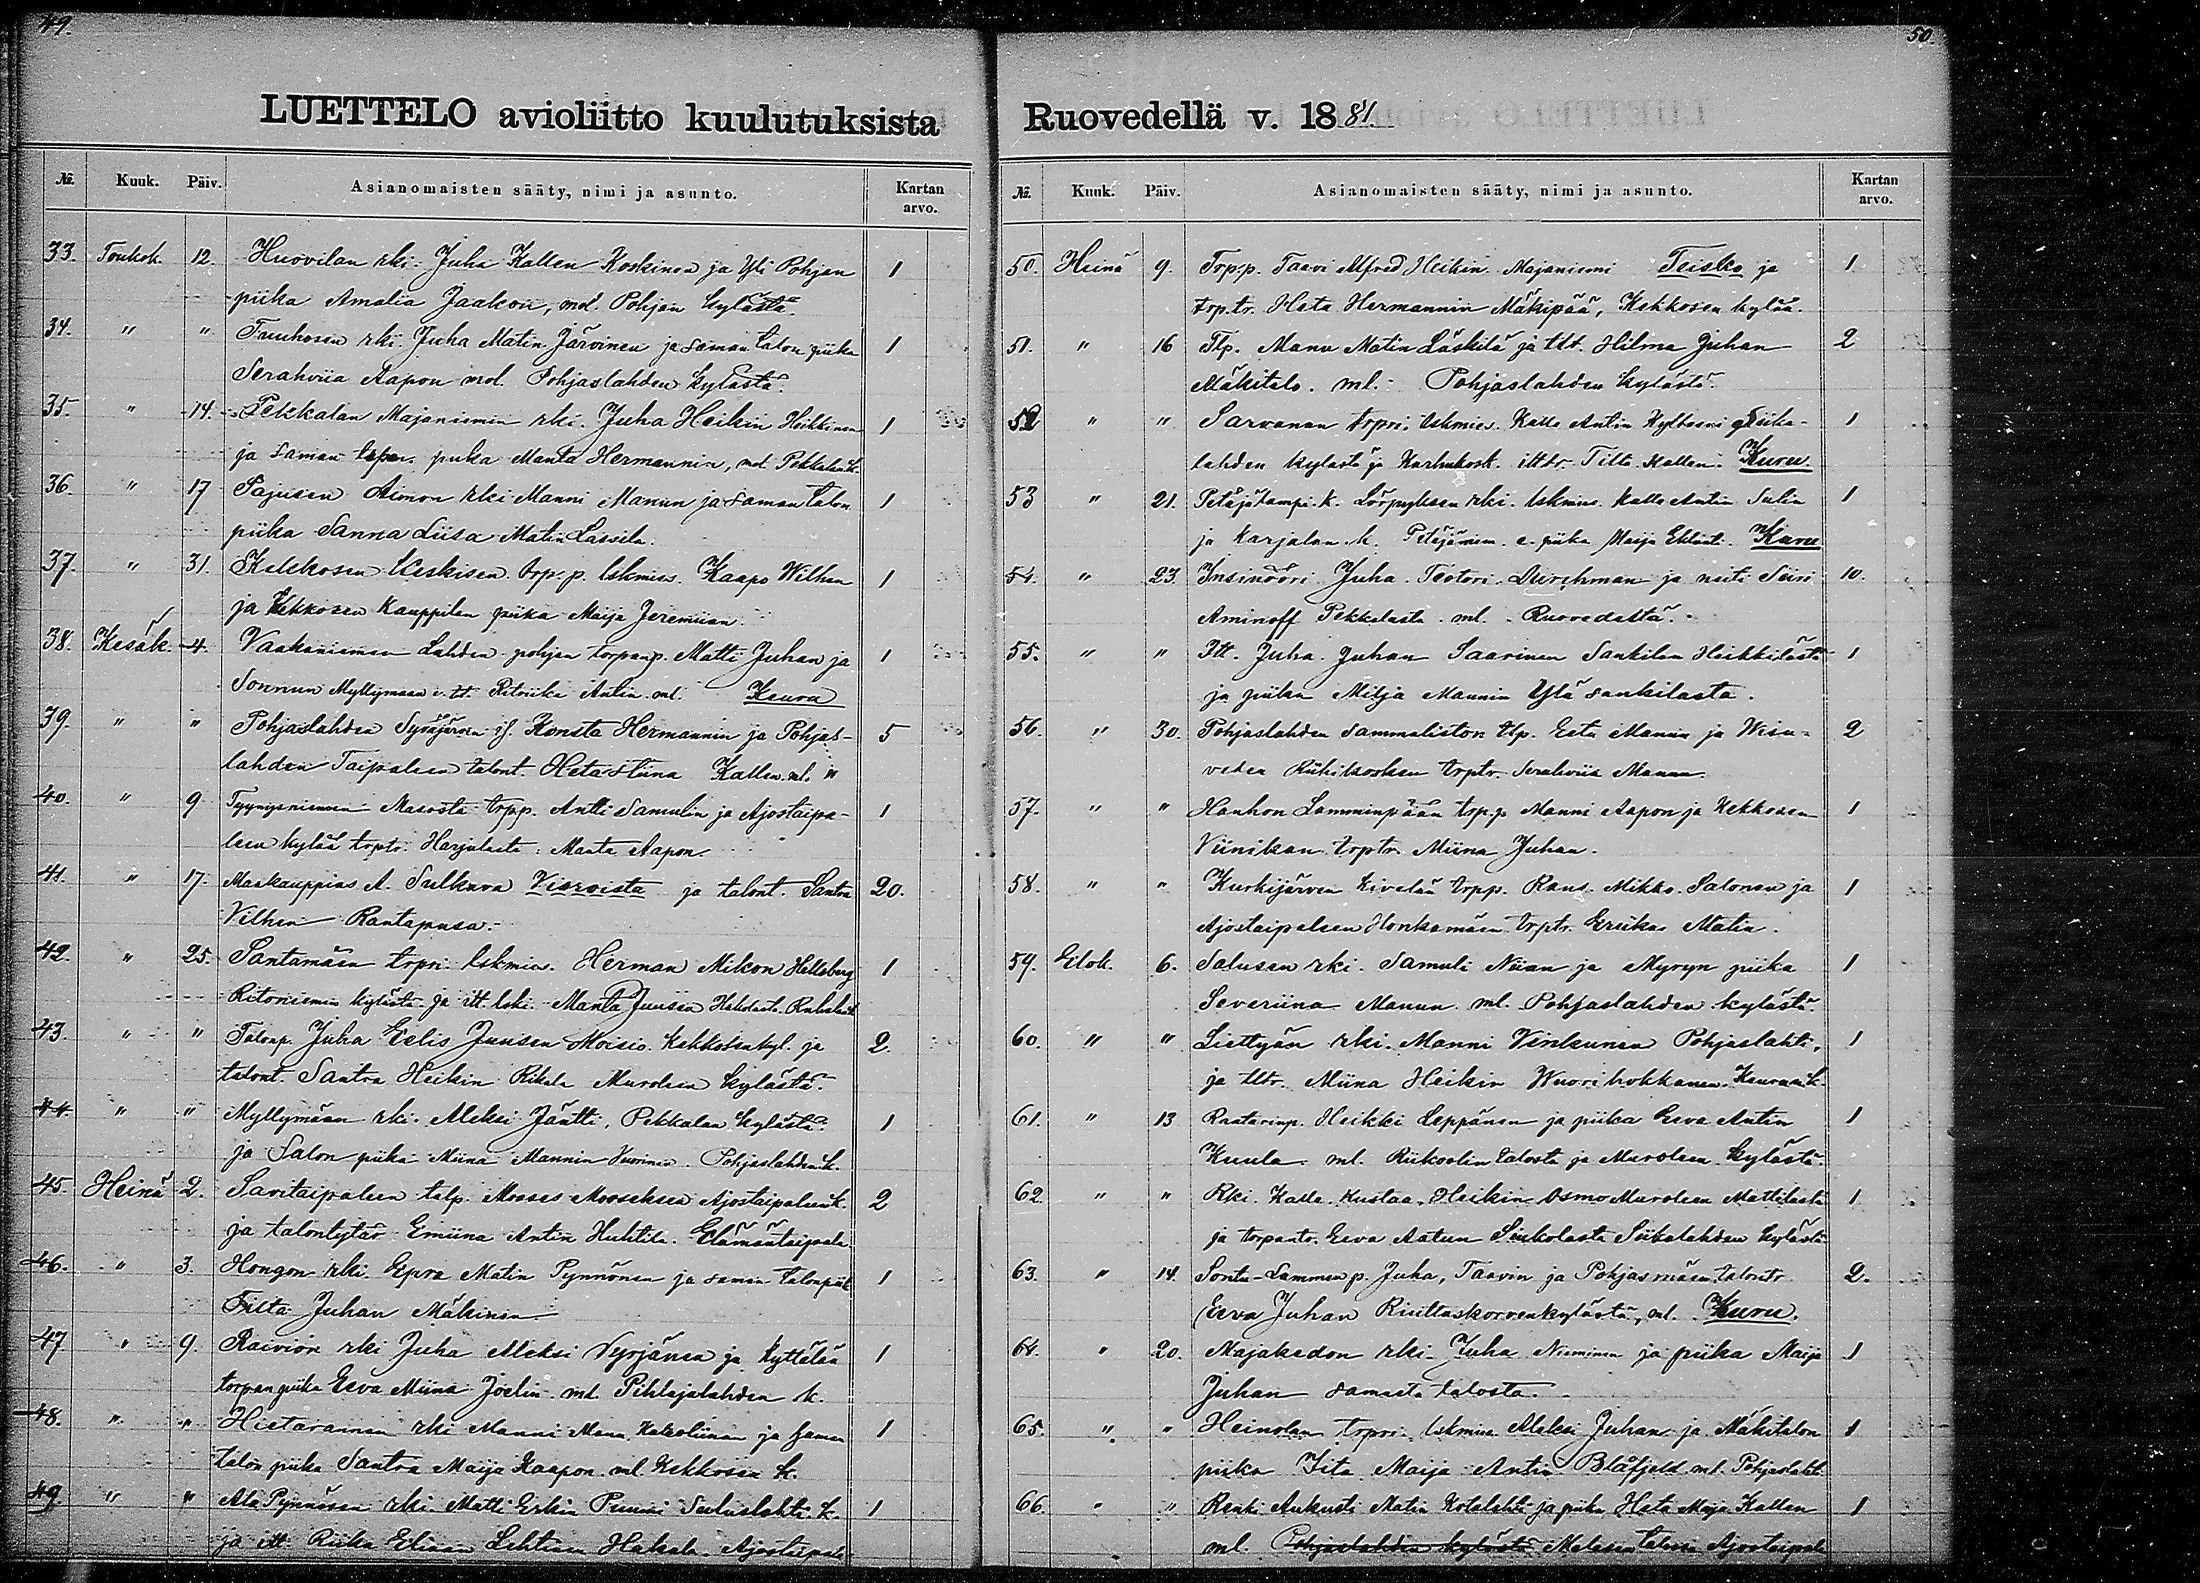 49.
LUETTELO avioliitto kuulutuksista
№. Kuuk. Päiv. Asianomaisten sääty, nimi ja asunto. Kartan arvo.
33. Toukok. 12. Huovilan rki. Juha Kallen Koskinen ja Yli Pohjan 1
piika Amalia Jaakon, mol. Pohjan kylästä.
34. " " Tuuhosen rki. Juha Matin Järvinen ja saman talon piika 1
Serahviia Aapon mol. Pohjaslahden kylästä.
35. " 14. Pekkalan Majaniemen rki. Juha Heikin Heikkinen 1
ja saman piika Manta Hermannin, mol. Pekkalan k.
36. " 17 Pajusen Aimon rki Manni Manun ja saman talon 1
piika Sanna Liisa Matin Lassila.
37. " 31. Kekkosen Keskisen torp. p. lskmies. Kaapo Wilhen 1
ja Kekkosen Kauppilan piika Maija Jeremiian.
38. Kesäk. 4. Vaakaniemen Lahden pohjan torpanp. Matti Juhan ja 1
Sonnun Myllymaan i. tt. Ritriika Antin ml. Keuru
39. " " Pohjaslahden Syväjärven if. Konsta Hermannin ja Pohjas- 5
lahden Taipaleen talont. Heta Stiina Kallen ml. "
40. " 9 Tyynysniemen Masosta torpp. Antti Samulin ja Ajostaipa- 1
leen kylää torptr. Harjulasta Manta Aapon.
41. " 17. Maakauppias A. Sulkava Virroista ja talont. Santra 20.
Vilhen Rantapusa.
42. " 25. Santamäen torpri lskmies. Herman Mikon Hellsberg 1
Ritoniemen kylästä ja itt. lski Manta Juusen
43. " " Talonp. Juha Eelis Juusen Moisio Kekkosenkyl. ja 2.
talont. Santra Heikin Rikala Muroleen kylästä.
44. " " Myllymäen rki. Aleksi Jäntti, Pekkalan kylästä 1
ja Salon piika Miina Mannin Vuorinen. Pohjaslahden k.
45. Heinä 2. Savitaipaleen talp. Mooses Mooseksen Ajostaipaleen k. 2
ja talontytär Emiina Antin Huhtila. Elämäntaipale.
46. " 3. Hongon rki. Epra Matin Pynnönen ja saman talon piik. 1
Tilta Juhan Mäkinen.
47 " 9. Raivion rki Juha Aleksi Vyrjänen ja Kyttälän 1
torpan piika Eeva Miina Joelin ml Pihlajalahden k.
48. " " Hietarannan rki Manni Manu Kakoliinan ja saman 1
talon piika Santra Maija Kaapon ml. Kekkosen k.
49. " " Ala Pynnösen rki Matti Erkin Punni Suluslahti k. 1
ja itt. Riika Eliaan Lehtinen Hakala. Ajostaipale
50.
Ruovedellä v. 1881
№. Kuuk. Päiv. Asianomaisten sääty, nimi ja asunto. Kartan arvo.
50. Heinä 9. Torp.p. Taavi Alfred Heikin Majaniemi Teisko ja 1
torp.tr. Heta Hermannin Mäkipää, Kekkosen kylää.
51. " 16 Tlp. Manu Matin Läskilä ja tlt. Hilma Juhan 2
Mäkitalo. ml. Pohjaslahden kylästä.
52 " " Sarvanan torpri. lskmies. Kalle Antin ja Siika- 1
lahden kylästä ja Karhukosk. itt. Tilta Kallen. Kuru
53 " 21. Petäjälampi k. Lörpyksen rki. lskmies. Kalle Antin Sulin 1
ja Karjalan k. Petäjämen e. piika Maija Eklund. Kuru
54. " 23. Insinööri Juha Teotori Durchman ja neiti Siiri 10.
Aminoff Pekkalasta ml. Ruovedeltä.
55. " " Itt. Juha Juhan Saarinen Sankilan Heikkilästä 1
ja piika Milja Mannin Ylä Sankilasta.
56. " 30. Pohjaslahden Sammaliston tlp. Eetu Manun ja Wisu- 2
veden Riihikosken torptr. Serahviia Manun.
57. " " Hanhon Lamminpään torp.p. Manni Aapon ja Kekkosen 1
Viinikan torptr. Miina Juhan.
58. " " Kurkijärven Kivelän torpp. Rans. Mikko Salonen ja 1
Ajostaipaleen Honkamäen torptr. Eriika Matin.
59. Elok. 6. Salusen rki. Samuli Niian ja Myryn piika 1
Severiina Manun ml. Pohjaslahden kylästä.
60. " " Liettyän rki. Manni Vinkunen Pohjaslahti, 1
ja tltr. Miina Heikin Wuorihokkanen Keuruu k.
61. " 13 Rantarinp. Heikki Leppänen ja piika Eeva Antin 1
Kuula. ml. Riikoolin talosta ja Muroleen kylästä.
62. " " Rki. Kalle Kustaa Heikin Osmo Muroleen Mattilasta 1
ja torpantr. Eeva Aatun Sinkolasta Siikalahden kylästä.
63. " 14. Sontu-Lammen p. Juha, Taavin ja Pohjasmäen talontr 2.
Eeva Juhan Riuttaskorvenkylästä, ml. Kuru.
64. " 20. Majakedon rki. Juha Nieminen ja piika Maija 1
Juhan samasta talosta.
65. " " Heinolan torpri. lskmies Aleksi Juhan ja Mäkitalon 1
piika Iita Maija Antin Blåfjeld ml. Pohjaslaht.
66. " " Renki Aukusti Matin Kotalahti ja piika Heta Maija Kallen 1
ml. Pohjaslahden kylästä Melasen talosta Ajostaipale